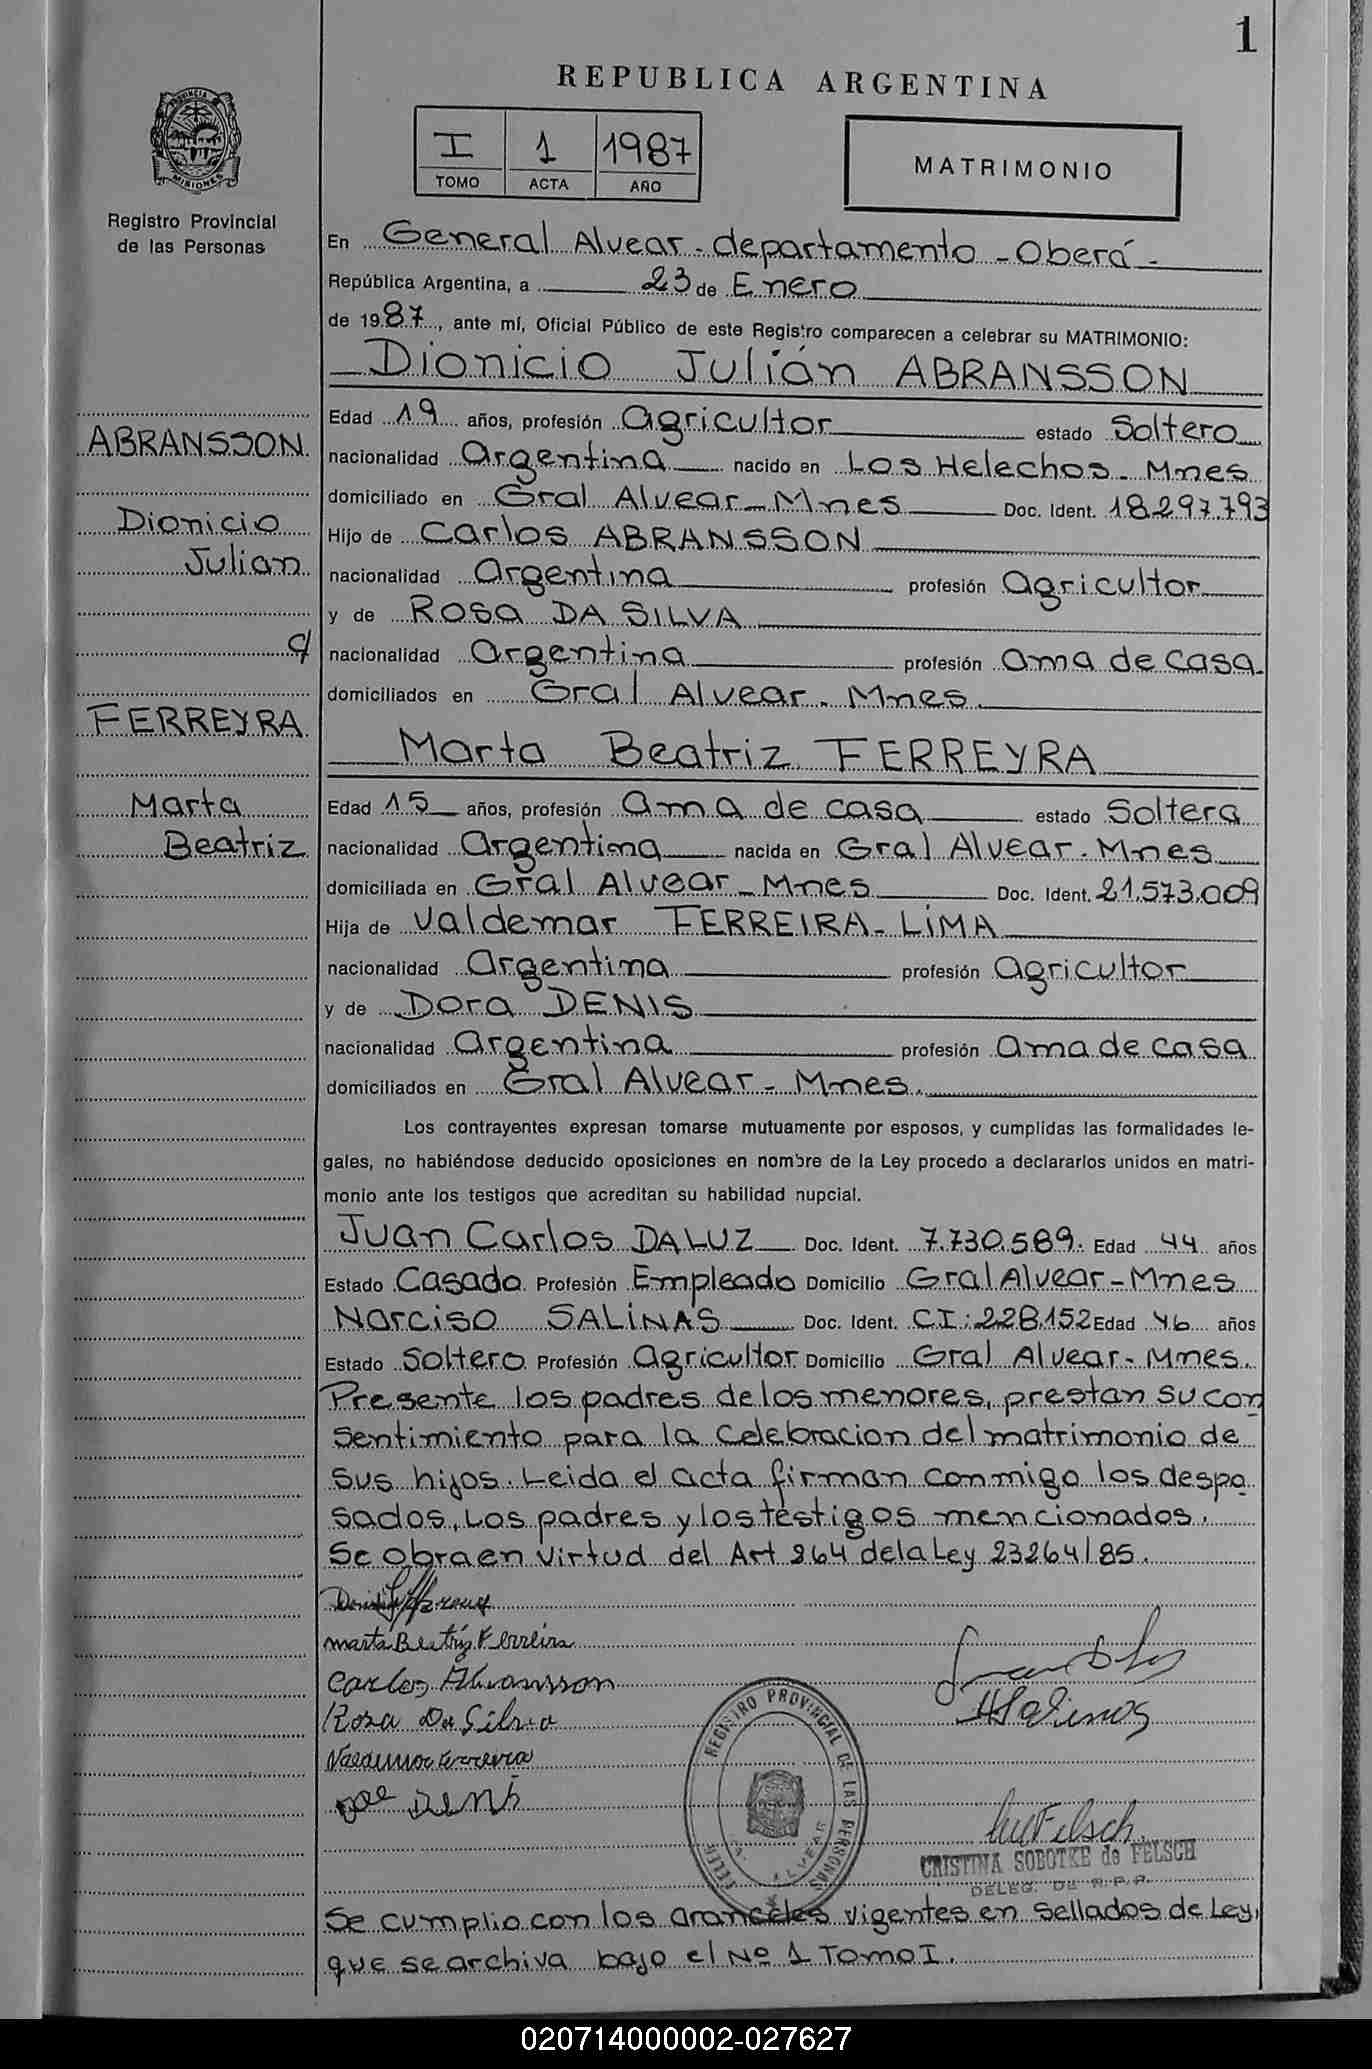 1
REPUBLICA ARGENTINA
I 1 1987
TOMO ACTA AÑO
MATRIMONIO
PROVINCIA DE
MISIONES
Registro Provincial
de las Personas
En General Alvear - departamento - Oberá -
República Argentina, a 23 de Enero
de 1987, ante mí, Oficial Público de este Registro comparecen a celebrar su MATRIMONIO:
Dionicio Julián ABRANSSON
ABRANSSON
Dionicio
Julian
c/
FERREYRA
Marta
Beatriz
Edad 19 años, profesión Agricultor estado Soltero
nacionalidad Argentina nacido en Los Helechos - Mnes
domiciliado en Gral Alvear - Mnes Doc. Ident. 18.297.793
Hijo de Carlos ABRANSSON
nacionalidad Argentina profesión Agricultor
y de Rosa DA SILVA
nacionalidad Argentina profesión Ama de casa.
domiciliados en Gral Alvear - Mnes.
Marta Beatriz FERREYRA
Edad 15 años, profesión Ama de casa estado Soltera
nacionalidad Argentina nacida en Gral Alvear - Mnes
domiciliada en Gral Alvear - Mnes Doc. Ident. 21.573.009
Hija de Valdemar FERREIRA - LIMA
nacionalidad Argentina profesión Agricultor
y de Dora DENIS
nacionalidad Argentina profesión Ama de casa
domiciliados en Gral Alvear - Mnes.
Los contrayentes expresan tomarse mutuamente por esposos, y cumplidas las formalidades le-
gales, no habiéndose deducido oposiciones en nombre de la Ley procedo a declararlos unidos en matri-
monio ante los testigos que acreditan su habilidad nupcial.
Juan Carlos DALUZ Doc. Ident. 7.730.589. Edad 44 años
Estado Casado Profesión Empleado Domicilio Gral Alvear - Mnes
Narciso SALINAS Doc. Ident. CI: 228.152 Edad 46 años
Estado Soltero Profesión Agricultor Domicilio Gral Alvear - Mnes.
Presente los padres de los menores, prestan su con
sentimiento para la celebracion del matrimonio de
sus hijos. Leida el acta firman conmigo los despo
sados, Los padres y los testigos mencionados.
Se obra en virtud del Art 264 de la Ley 23264/85.
Marta Beatriz Ferreira
Carlos Abransson
Rosa Da Silva
Valdemar Ferreira
Denis
Salinas
REGISTRO PROVINCIAL DE LAS PERSONAS
ALVEAR
Felsch
CRISTINA SOBOTKE de FELSCH
DELEG. DE R.P.P.
Se cumplio con los aranceles vigentes en sellados de Ley,
que se archiva bajo el Nº 1 Tomo I.
020714000002-027627